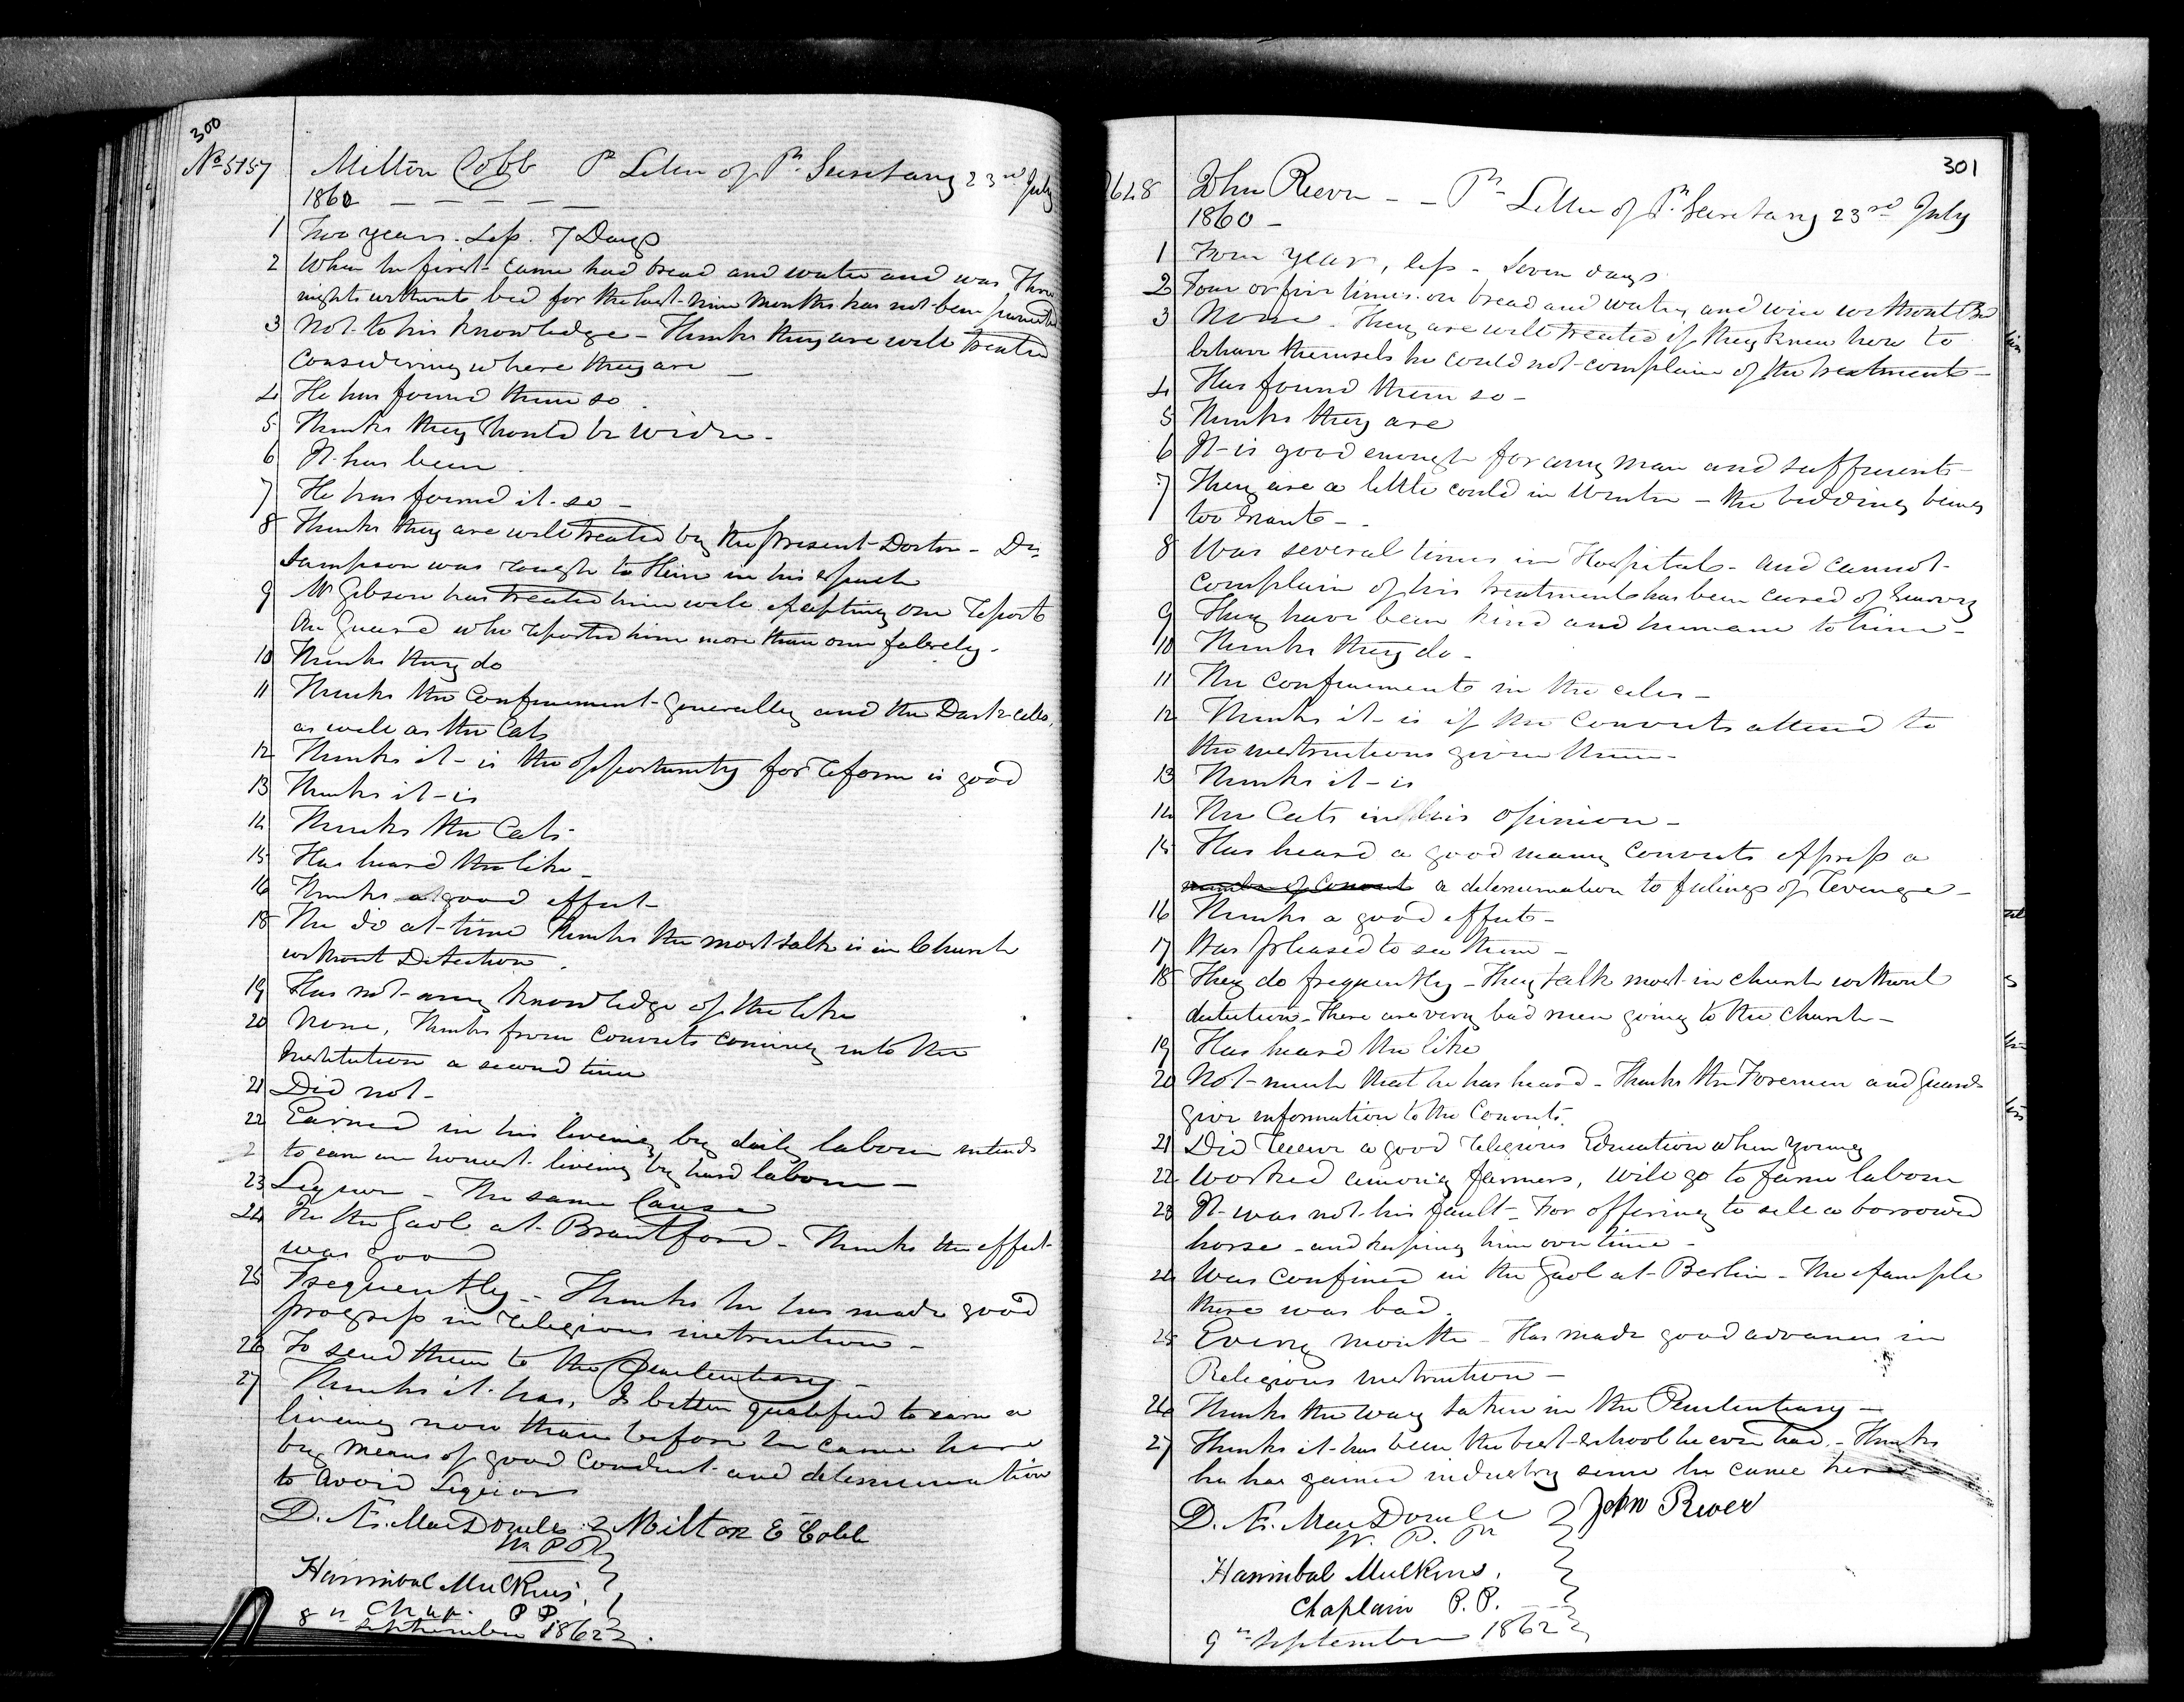 300
No 5157 Milton Cobb Pr Letter of Pr Secretary 23rd July
1860
1 Two years. Less. 7 Days
2 When he first came had bread and water and was Three
nights without bed for the last nine months has not been punished
3 Not to his knowledge - Thinks they are well treated
Considering where they are
4 He has found them so.
5 Thinks they should be wider.
6 It has been.
7 He has found it so -
8 Thinks they are well treated by the present Doctor - Dr
Sampson was rough to Him in his speech
9 Mr Gibson has treated him well excepting one report
One Guard who reported him more than once falsely.
10 Thinks they do
11 Thinks the Confinement generally and the Dark cells,
as well as the Cats
12 Thinks it is the opportunity for reform is good
13 Thinks it is
14 Thinks the Cats
15 Has heard the like
16 Thinks a good effect
18 The do at time Thinks the most talk is in Church
without Detection.
19 Has not any knowledge of the like
20 None, Thinks from Convicts coming into the
Institution a second time
21 Did not -
22 Earned in his liveing by daily labour intends
to earn an honest liveing by hard labour -
23 Liquor - The same Cause
24 In the Gaol at Brantford - Thinks the effect
was good
25 Frequently - Thinks he has made good
progress in religious instruction -
26 To send them to the Penitentiary -
27 Thinks it has, Is better qualified to earn a
liveing now than before he came here
by means of good Conduct and determination
to avoid Liquor
D. Æ. MacDonell Milton E Cobb
W. P. P.
Hannibal Mulkins,
Chap. P P.
8th September 1862

301
John Reever - - Pr Letter of Pr Secretary 23rd July
1860 -
1 Four year, less - Seven days
2 Four or five times on bread and water, and wice without Bed
3 None - They are well treated if they knew how to
behave themsels he could not complain of the treatment -
4 Has found them so -
5 Thinks they are
6 It is good enough for any man and sufficient
7 They are a little could in Winter - the bedding being
too scant -
8 Was several times in Hospital - and cannot
complain of his treatment has been cured of Scurvy
9 They have been kind and humane to him -
10 Thinks they do -
11 The confinement in the cells -
12 Thinks it is if the Convicts attend to
the instructions given them -
13 Thinks it is
14 The Cats in his opinion -
15 Has heard a good many Convicts express a
number of Convict a determination to feelings of revenge -
16 Thinks a good effect -
17 Was pleased to see them -
18 They do frequently - They talk most in church without
detection - There are very bad men going to the church -
19 Has heard the like
20 Not much that he has heard - Thinks the Foremen and Guards
give information to the Convicts
21 Did receive a good religious Education when young
22 Worked among farmers, will go to farm labour
23 It was not his fault - For offering to sell a borrowed
horse - and keeping him over time -
24 Was confined in the Gaol at Berlin - The example
there was bad.
25 Every month - Has made good advances in
Religious instruction -
26 Thinks the way taken in the Penitentiary -
27 Thinks it has been the best school he ever had - Thinks
he has gained industry since he came here
D. Æ. MacDonell John River
W. P. P.
Hannibal Mulkins,
Chaplain P. P.
9th September 1862